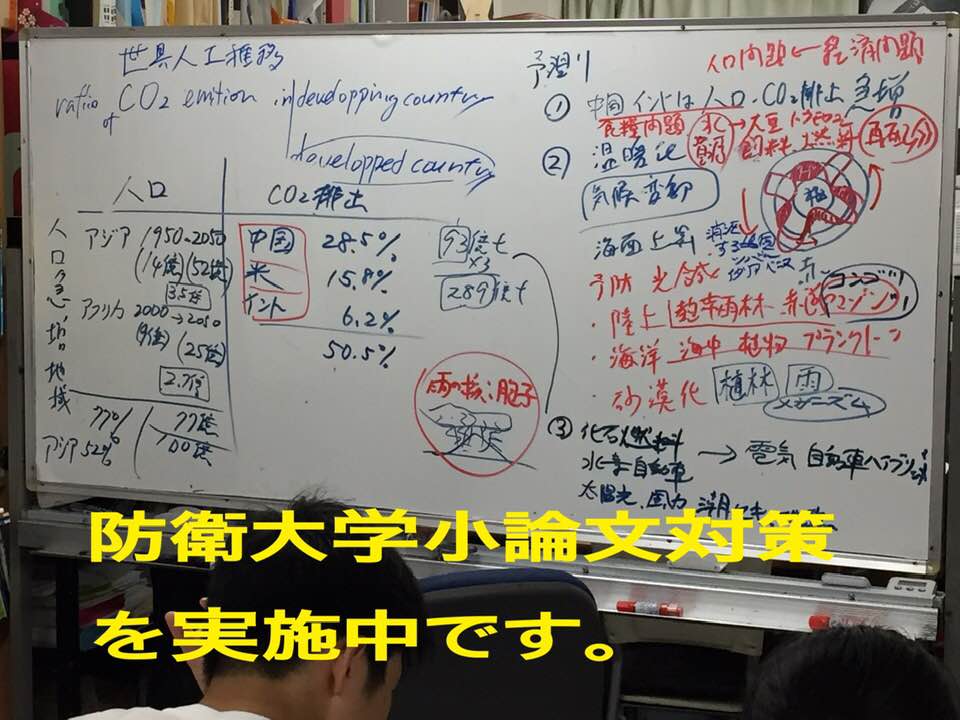 世界人口推移
ratio of CO2 emition in developping country
developped country
人口
CO2排出
人口急増地域
アジア 1950~2050
(14億)(52億)
3.5倍
アフリカ 2000→2050
(9億)
(25億)
2.7倍
77%
77億
アジア52%
100億
中国 28.5%
米 15.8%
インド 6.2%
50.5%
93億t
×3
289億t
雨の核、胞子
予習
人口問題←経済問題
① 中国インドは人口・CO2排出急増
食糧問題
資源
大豆
飼料、燃料
② 温暖化
気候変動
海面上昇
予防 光合成
・陸上 熱帯雨林 赤道 アマゾン
コンゴ
・海洋 海中植物 プランクトン
・砂漠化 植林 雨
メカニズム
③ 化石燃料
水素自動車
→ 電気自動車ハイブリッド
太陽光、風力
防衛大学小論文対策
を実施中です。